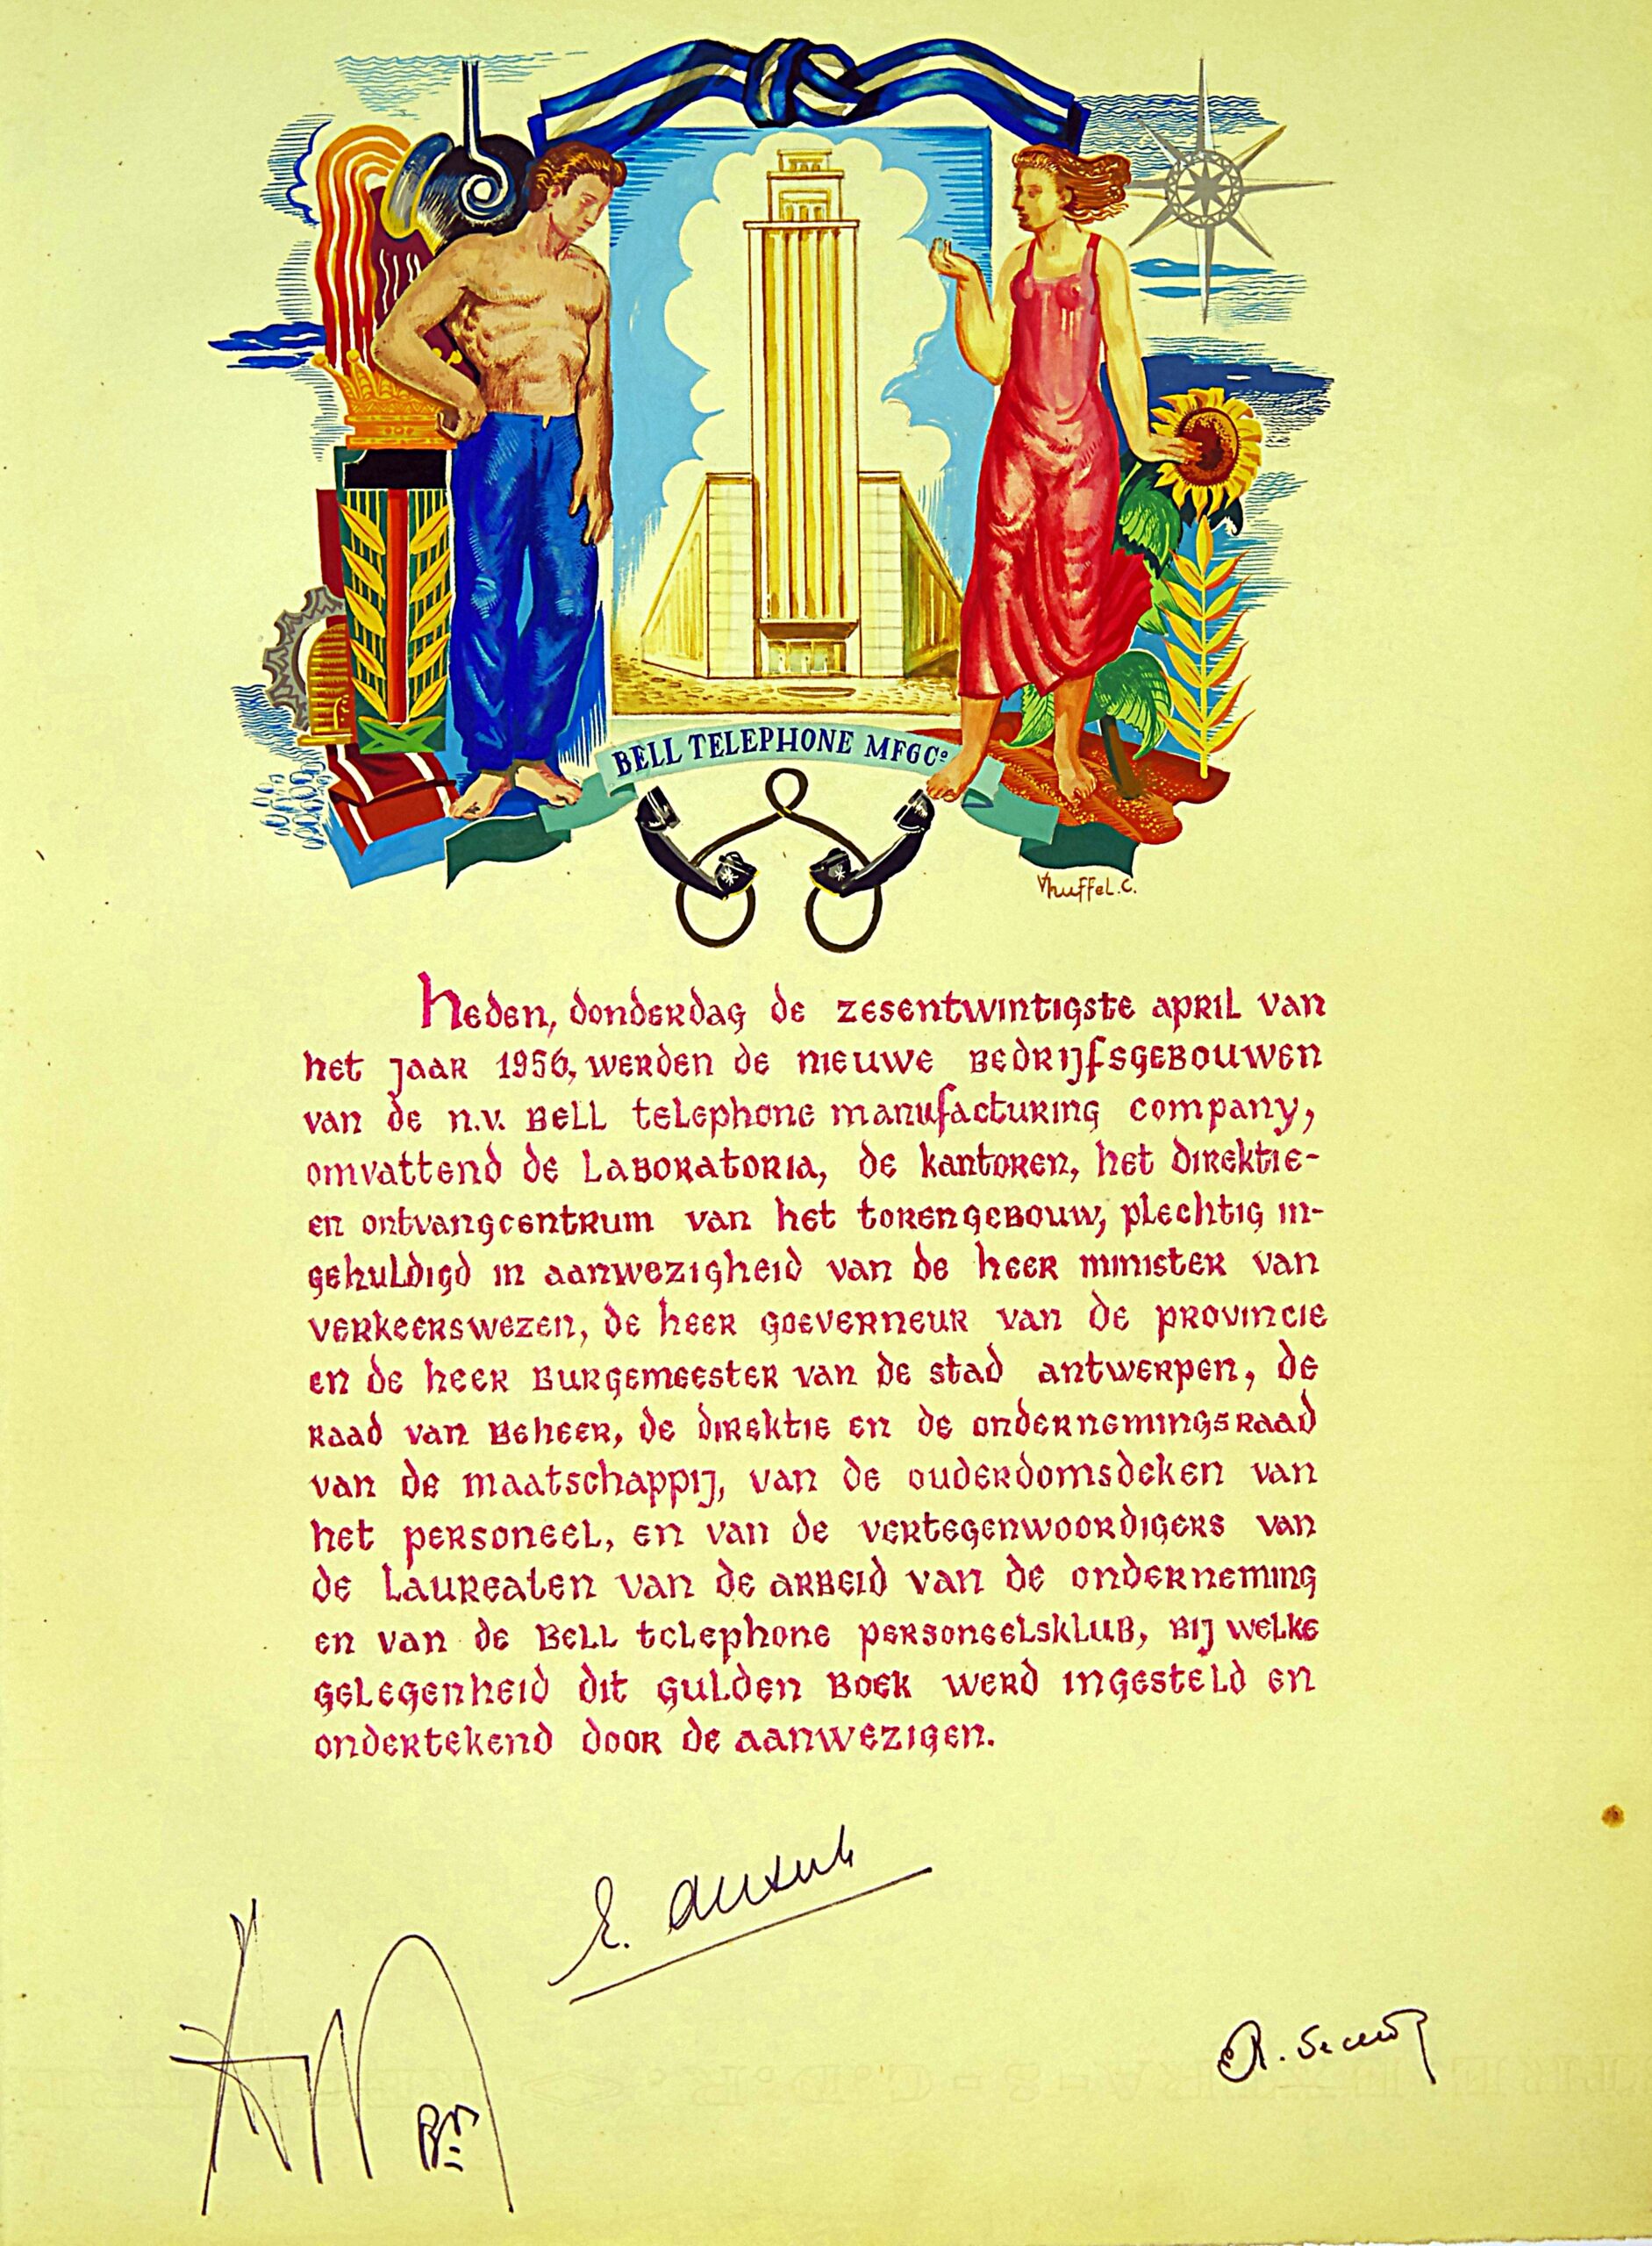 BELL TELEPHONE MFG Cº
Heden, donderdag de zesentwintigste april van
het jaar 1956, werden de nieuwe bedrijfsgebouwen
van de n.v. Bell telephone manufacturing company,
omvattend de Laboratoria, de kantoren, het direktie-
en ontvangcentrum van het torengebouw, plechtig in-
gehuldigd in aanwezigheid van de heer minister van
verkeerswezen, de heer goeverneur van de provincie
en de heer Burgemeester van de stad antwerpen, de
Raad van Beheer, de direktie en de ondernemingsraad
van de maatschappij, van de ouderdomsdeken van
het personeel, en van de vertegenwoordigers van
de Laureaten van de arbeid van de onderneming
en van de Bell telephone personeelsklub, bij welke
gelegenheid dit gulden boek werd ingesteld en
ondertekend door de aanwezigen.